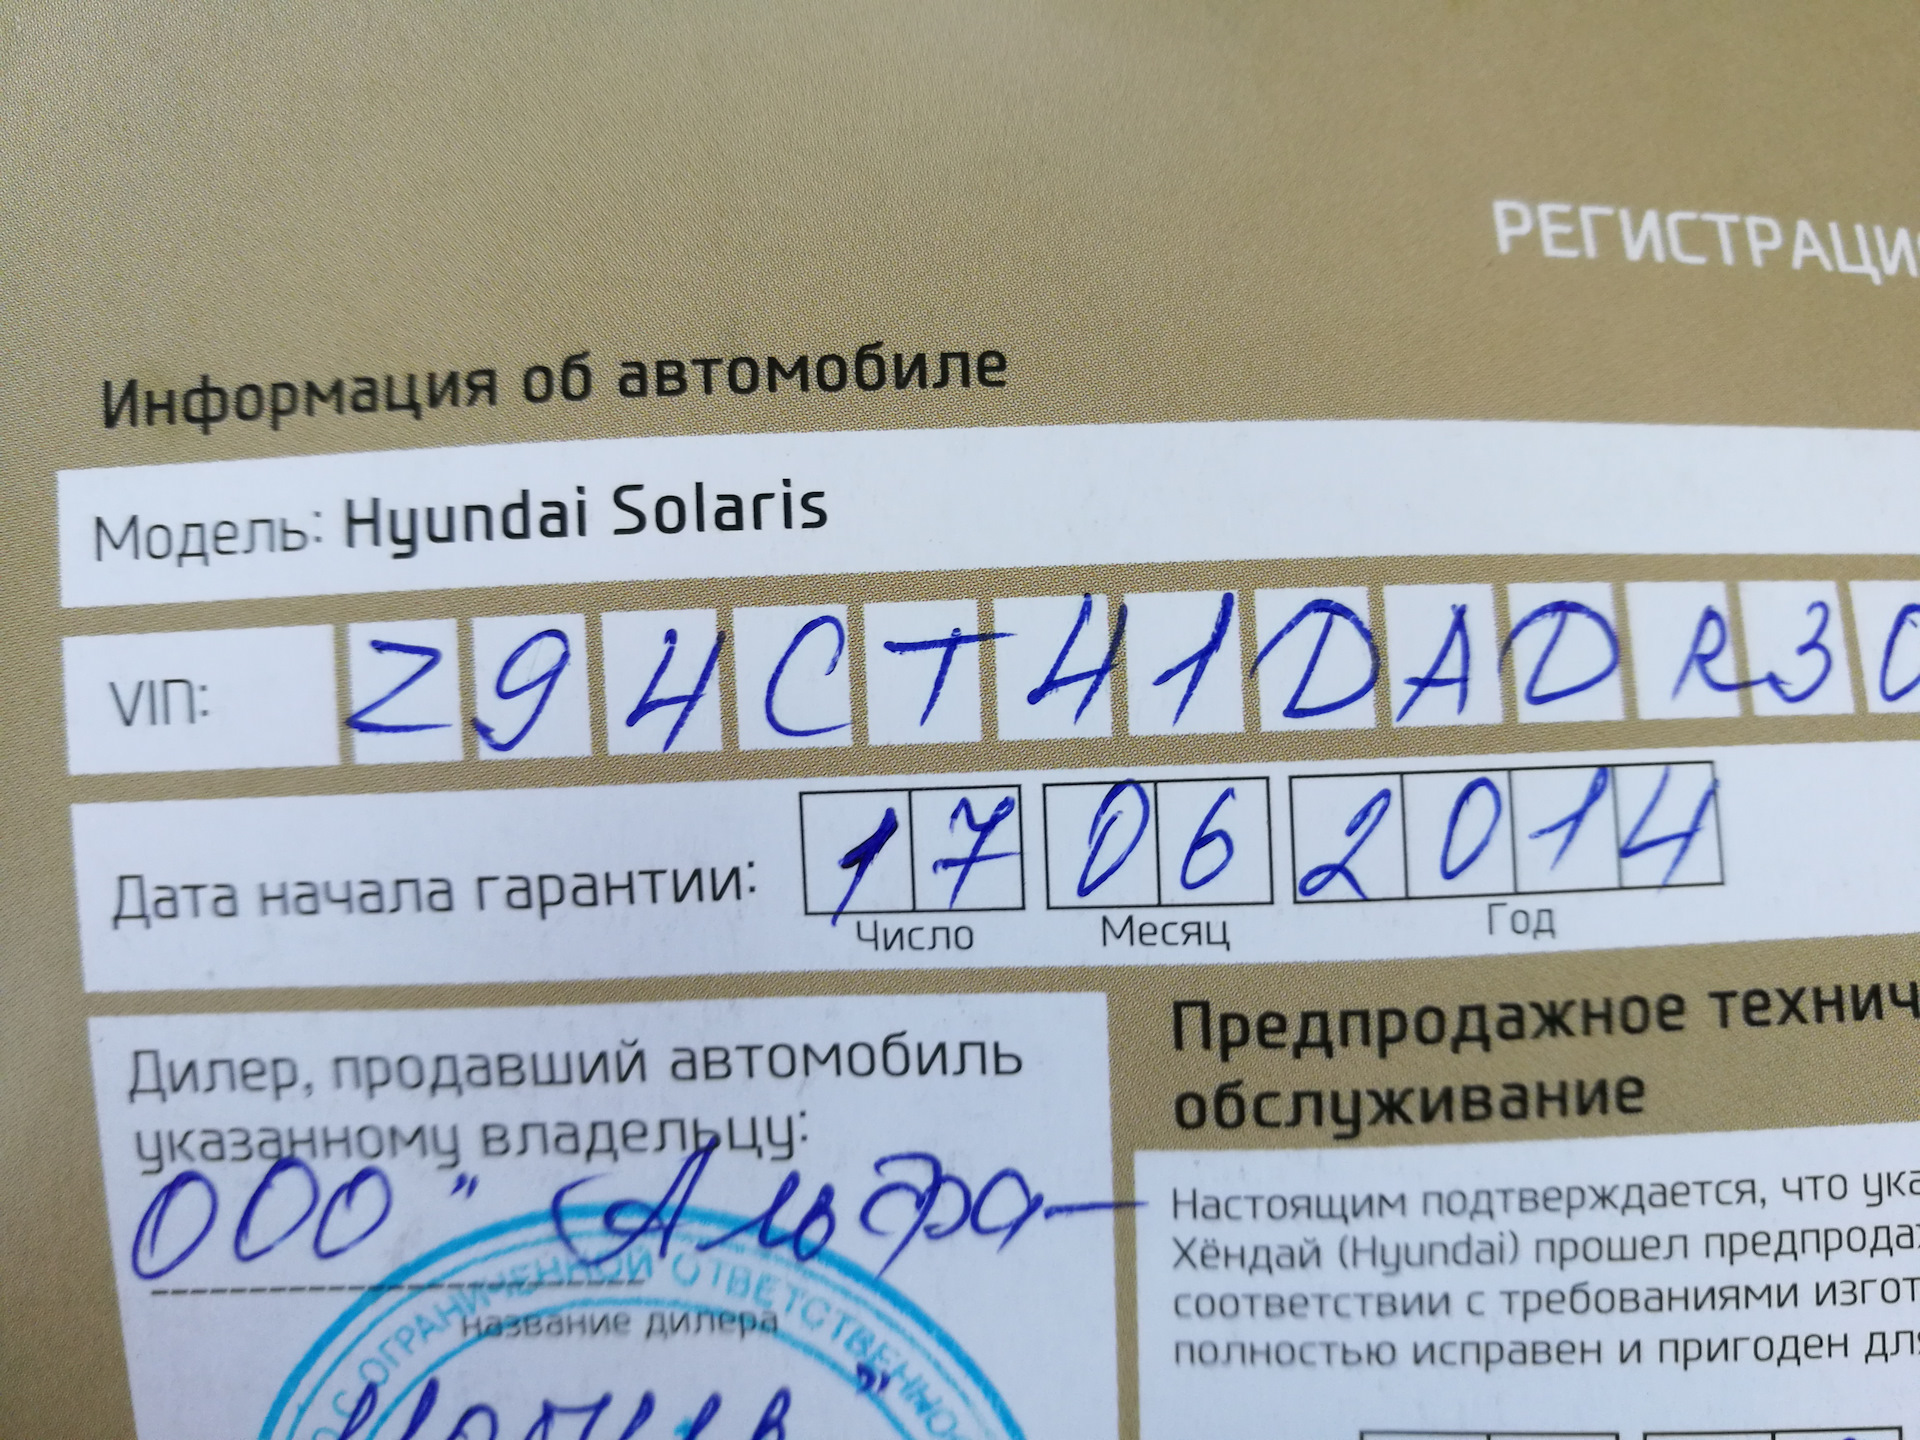 РЕГИСТРАЦИ
Информация об автомобиле
Модель: Hyundai Solaris
VIN: Z94CT41DADR30
Дата начала гарантии: 17 06 2014
Число Месяц Год
Дилер, продавший автомобиль
указанному владельцу:
ООО "Альфа-
название дилера
С ОГРАНИЧЕННОЙ ОТВЕТСТВЕННОС
Предпродажное технич
обслуживание
Настоящим подтверждается, что ука
Хёндай (Hyundai) прошел предпрода
соответствии с требованиями изгот
полностью исправен и пригоден для